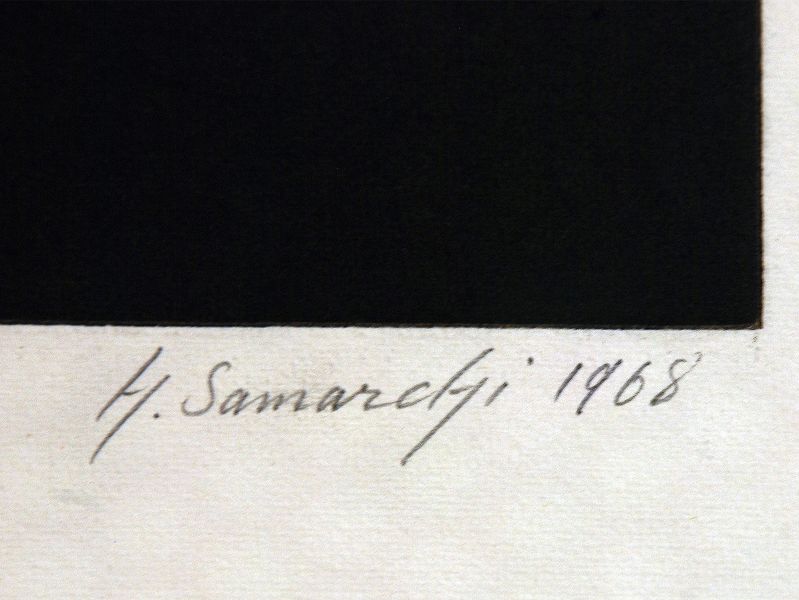 H. Samardji 1968